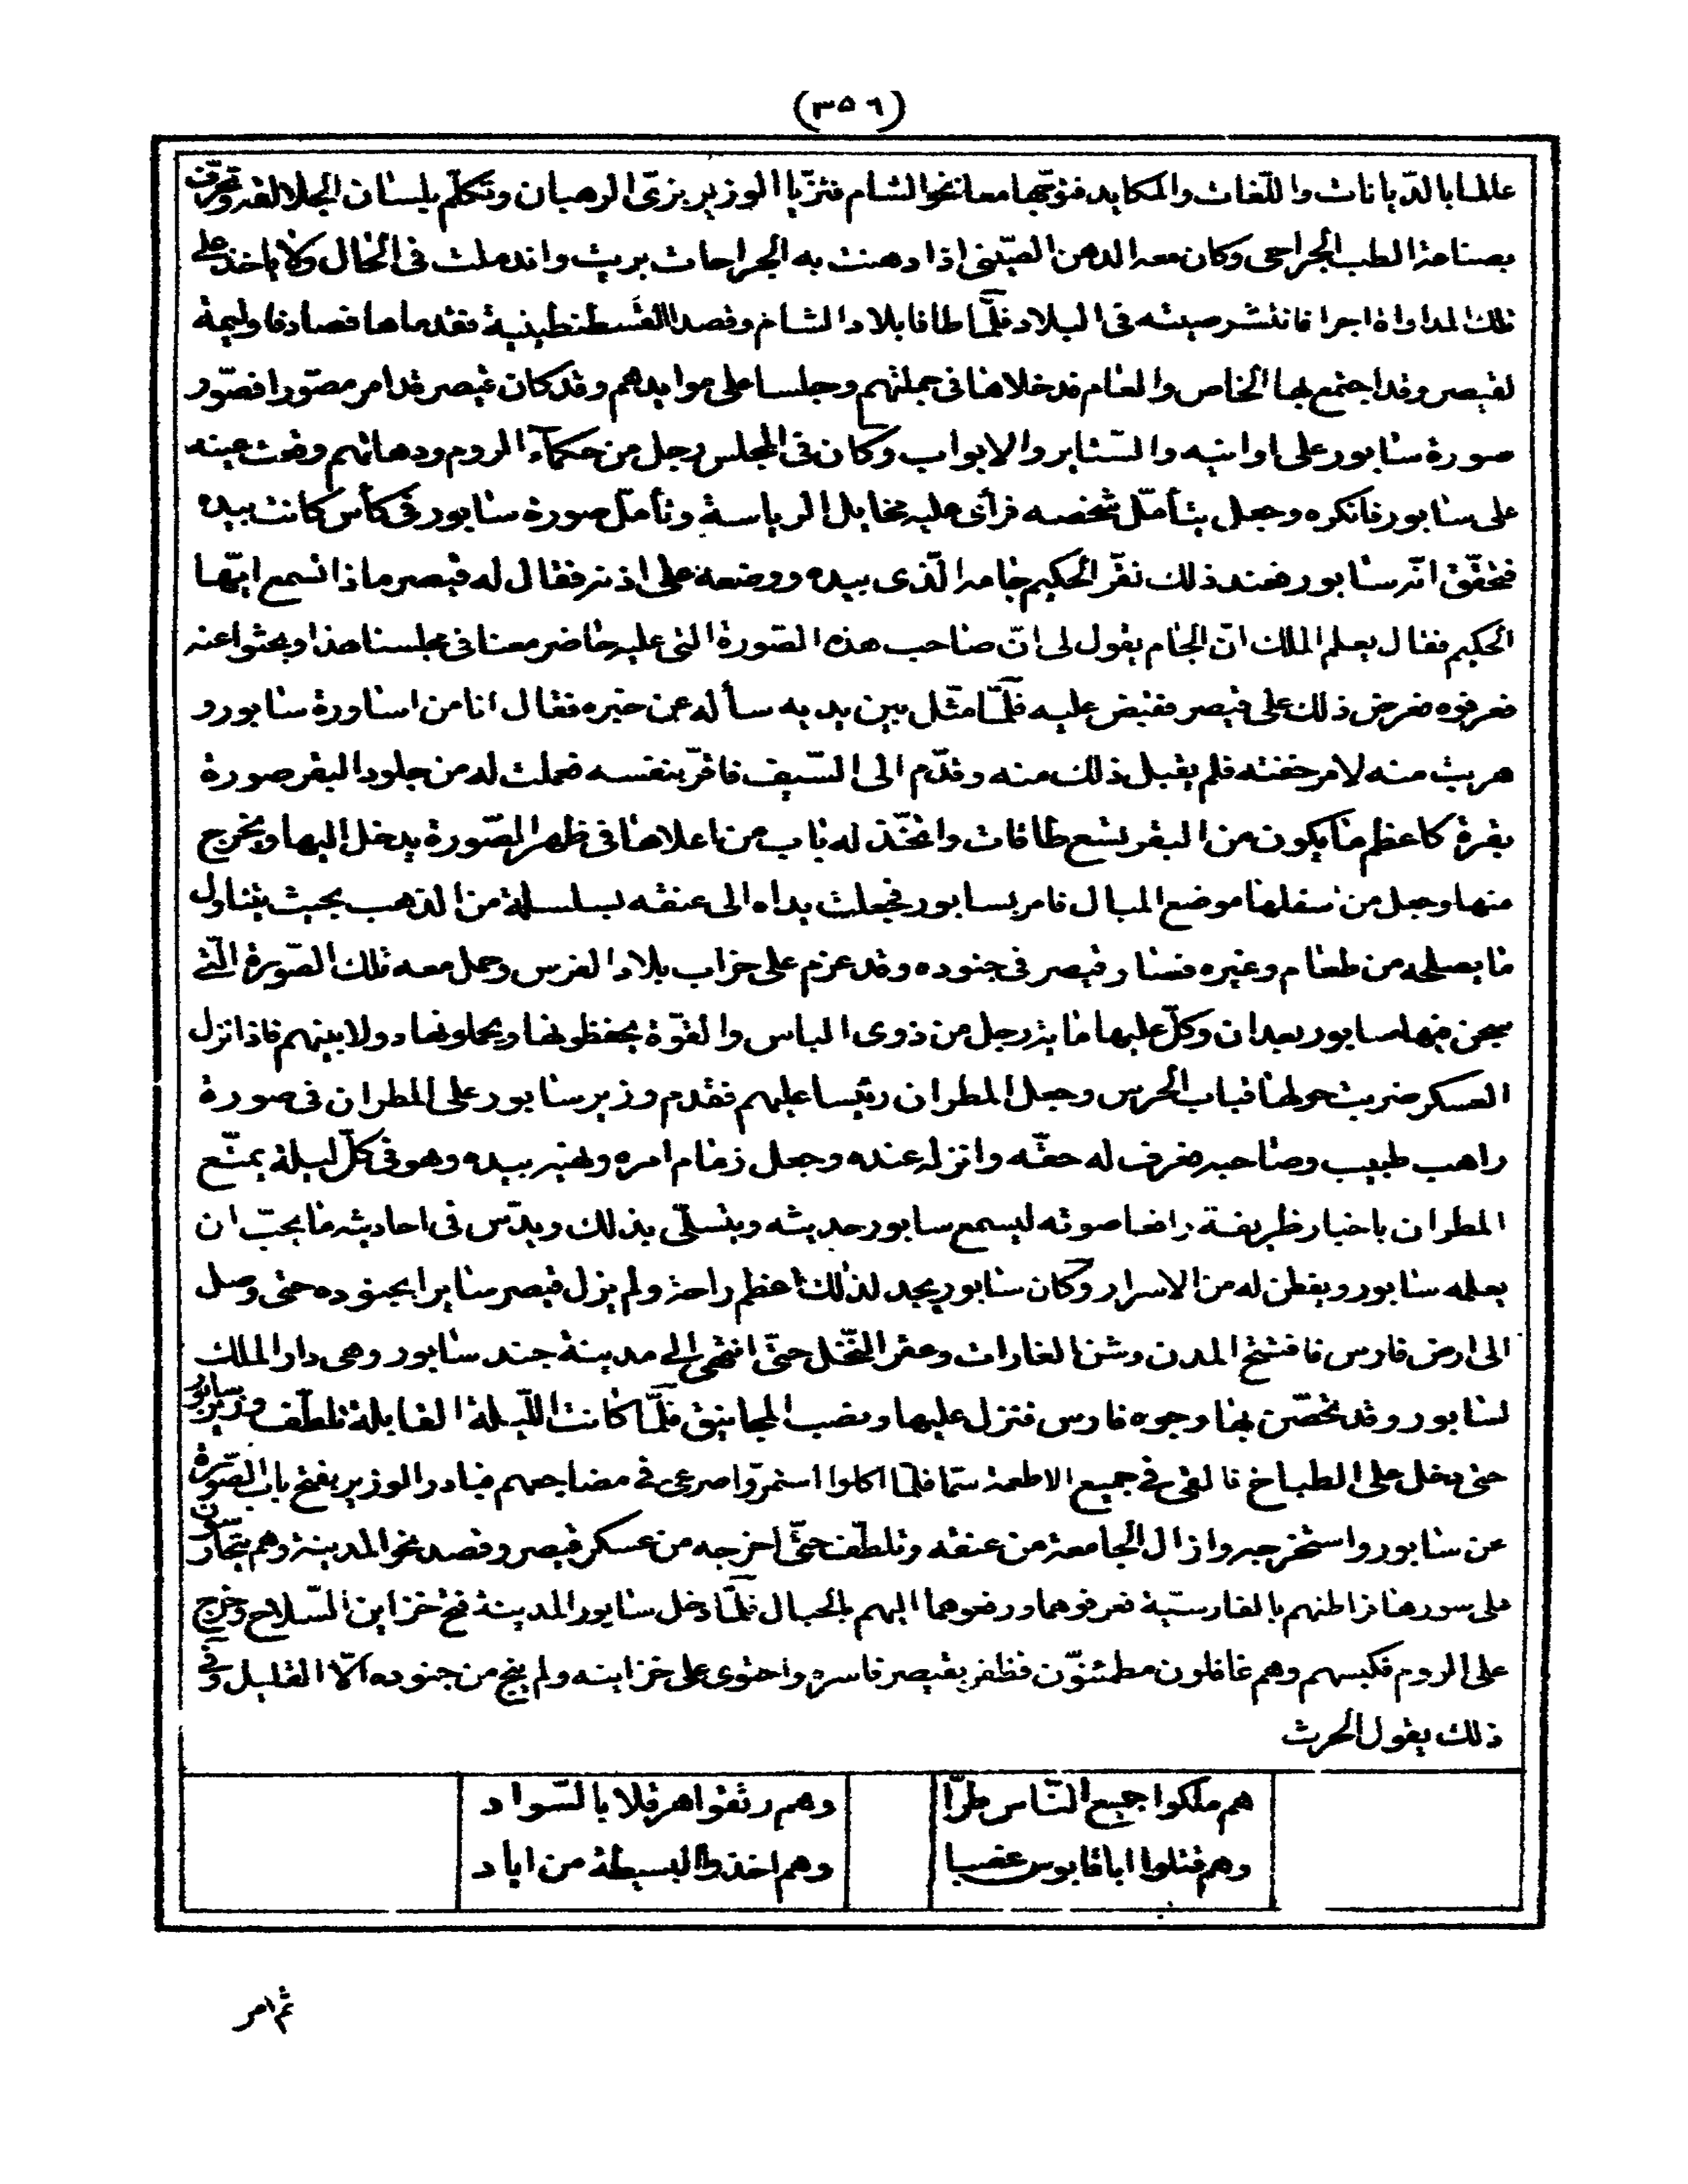 (٣٥٦)
عالما بالديانات واللّغات والمكايد فتوجّها معا نحو الشام فتزيّا الوزير بزىّ الرهبان وتكلّم بلسان الجلالقه وتحرّف
بصناعة الطب الجراحى وكان معه الدهن الصّينى اذا دهنت به الجراحات بريت واندملت فى الحال وكان لا ياخذ على
تلك المداواة اجرا فانتشر صيته فى البلاد فلمّا طافا بلاد الشام وقصدا القسطنطينية فقدماها فصادفا وليمة
لقيصر وقد اجتمع بها الخاص والعام فدخلاها فى جملتهم وجلسا على موايدهم وقد كان قيصر قد امر مصوّرا فصوّر
صورة سابور على اوانيه والستاير والابواب وكان فى المجلس رجل من حكمآء الروم ودهاتهم وقعت عينه
على سابور فانكره وجعل يتأمّل شخصه فرأى عليه مخايل الرياسة وتأمل صورة سابور فى كأس كانت بيده
فتحقّق انّه سابور فعند ذلك نقر الحكيم جامه الّذى بيده ووضعه على اذنه فقال له قيصر ماذا تسمع ايّها
الحكيم فقال يعلم الملك انّ الجام يقول لى انّ صاحب هذه الصّورة التى عليه حاضر معنا فى مجلسنا هذا وبحثوا عنه
فعرفوه فعرض ذلك على قيصر فقبض عليه فلمّا مثّل بين يديه سأله عن خبره فقال انا من اساورة سابور و
هربت منه لامر خفته فلم يقبل ذلك منه وقدّم الى السّيف فاقرّ بنفسه فعملت له من جلود البقر صورة
بقرة كاعظم ما يكون من البقر بسبع طاقات واتخّذ له باب من اعلاها فى ظهر الصّورة يدخل اليها ويخرج
منها وجعل من سفلها موضع المبال فامر بسابور فجعلت يداه الى عنقه بسلسلة من الذهب بحيث يتناول
ما يصلحه من طعام وغيره فسار قيصر فى جنوده وقد عزم على خراب بلاد الفرس وحمل معه تلك الصّورة الّتى
سجن فيها سابور بعد ان وكّل عليها مايه رجل من ذوى الباس والقوّة يحفظونها ويحملونها دولا بينهم فاذا نزل
العسكر ضربت حولها قباب الحرس وجعل المطران رئيسا عليهم فقدم وزير سابور على المطران فى صورة
راهب طبيب وصاحبه فعرف له حقّه وانزله عنده وجعل زمام امره ونهيه بيده وهو فى كلّ ليلة يمتّع
المطران باخبار ظريفة رافعا صوته ليسمع سابور حديثه ويتسلّى بذلك ويدّس فى احاديثه ما يحبّ ان
يعلمه سابور ويفطن له من الاسرار وكان سابور يجد لذلك اعظم راحة ولم يزل قيصر سايرا بجنوده حتى وصل
الى ارض فارس فافتتح المدن وشن الغارات وعقر النّخل حتّى انتهى الى مدينة جند سابور وهى دار الملك
لسابور وقد تحصّن بها وجوه فارس فنزل عليها ونصب المجانيق فلمّا كانت اللّيلة القابلة تلطّف وزير سابور
حتى دخل على الطباخ فالقى فى جميع الاطعمة سمّا فلمّا اكلوا استمرّوا صرعى فى مضاجعهم فبادر الوزير يفتح باب الصّورة
عن سابور واستخرجه وازال الجامعة من عنقه وتلطّف حتّى اخرجه من عسكر قيصر وقصد نحو المدينة وهم يتحارسون
على سورها فراطنهم بالفارسيّة فعرفوهما ورفعوهما اليهم بالحبال فلمّا دخل سابور المدينة فتح خزاين السّلاح وخرج
على الروم فكبسهم وهم غافلون مطمئنوّن فظفر بقيصر فاسره واحتوى على خزاينه ولم ينج من جنوده الّا القليل وفى
ذلك يقول الحرث
هم ملكوا جميع النّاس طرّا وهم رتقوا هرقلا بالسّواد
وهم قتلوا ابا قابوس غصبا وهم اخذوا البسيطة من اياد
ثم امر